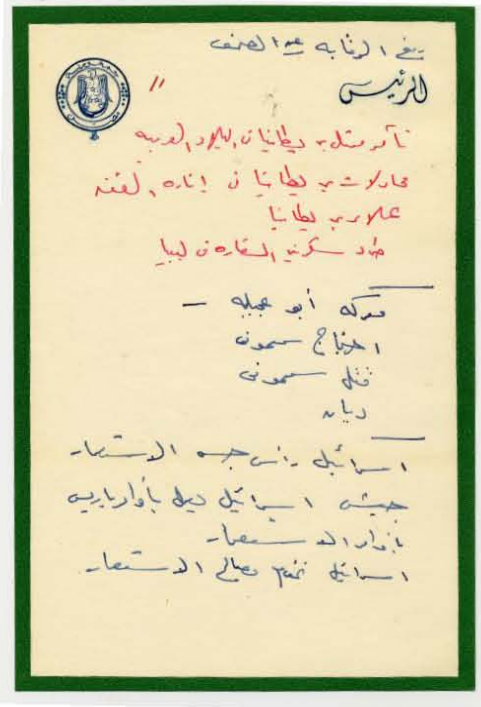 رفع الرقابه عن الصحف
الرئيس
تآمر بريطانيا البلاد العربيه
محاولات بريطانيا فى إثاره الفتنه
علاء بريطانيا
طرد سكرتير السفاره فى ليبيا
معركه أبو عجيله -
احتجاج سيمونى
قتل سيمونى
ديان
اسرائيل رأس جسر الاستعمار
جيش اسرائيل يعمل بأوامر باريس
بأوامر الاستعمار
اسرائيل تخدم مصالح الاستعمار